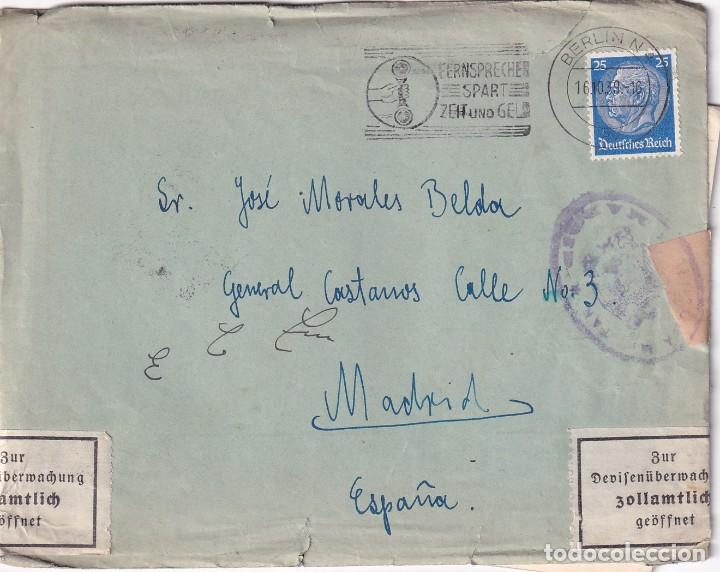 FERNSPRECHER
SPART
ZEIT UND GELD
BERLIN N
16.10.39.-16
25 25
Deutsches Reich
Sr. José Morales Belda
General Castanos Calle No. 3.
Madrid
España.
Zur
überwachung
amtlich
öffnet
Zur
Devisenüberwach
zollamtlich
geöffnet
todocoleccion.net